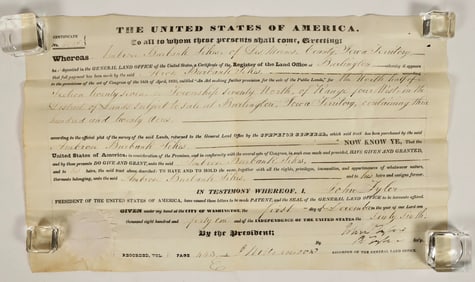 THE UNITED STATES OF AMERICA.
CERTIFICATE
No.
To all to whom these presents shall come, Greeting:
Whereas Burbank Sikes, of Des Moines County Iowa Territory
ha deposited in the GENERAL LAND OFFICE of the United States, a Certificate of the Register of the Land Office at Burlington whereby it appears
that full payment has been made by the said Burbank Sikes according to
the provisions of the act of Congress of the 24th of April, 1820, entitled "An Act making further provision for the sale of the Public Lands," for the North half of
Section twenty seven in Township Seventy North, of Range four West, in the
District of Lands subject to sale at Burlington, Iowa Territory, containing three
hundred and twenty acres
according to the official plat of the survey of the said Lands, returned to the General Land Office by the SURVEYOR GENERAL, which said tract has been purchased by the said
Burbank Sikes NOW KNOW YE, That the
United States of America, in consideration of the Premises, and in conformity with the several acts of Congress, in such case made and provided, HAVE GIVEN AND GRANTED,
and by these presents DO GIVE AND GRANT, unto the said Burbank Sikes
and to his heirs, the said tract above described: TO HAVE AND TO HOLD the same, together with all the rights, privileges, immunities, and appurtenances of whatsoever nature,
thereunto belonging, unto the said Burbank Sikes and to his heirs and assigns forever.
IN TESTIMONY WHEREOF, I, John Tyler
PRESIDENT OF THE UNITED STATES OF AMERICA, have caused these Letters to be made PATENT, and the SEAL of the GENERAL LAND OFFICE to be hereunto affixed.
GIVEN under my hand at the CITY OF WASHINGTON, the first day of December in the year of our Lord one
thousand eight hundred and forty one and of the INDEPENDENCE OF THE UNITED STATES the Sixty Sixth
By the President: John Tyler
By R. Tyler Sec'y.
RECORDED, VOL. PAGE Williamson RECORDER OF THE GENERAL LAND OFFICE.